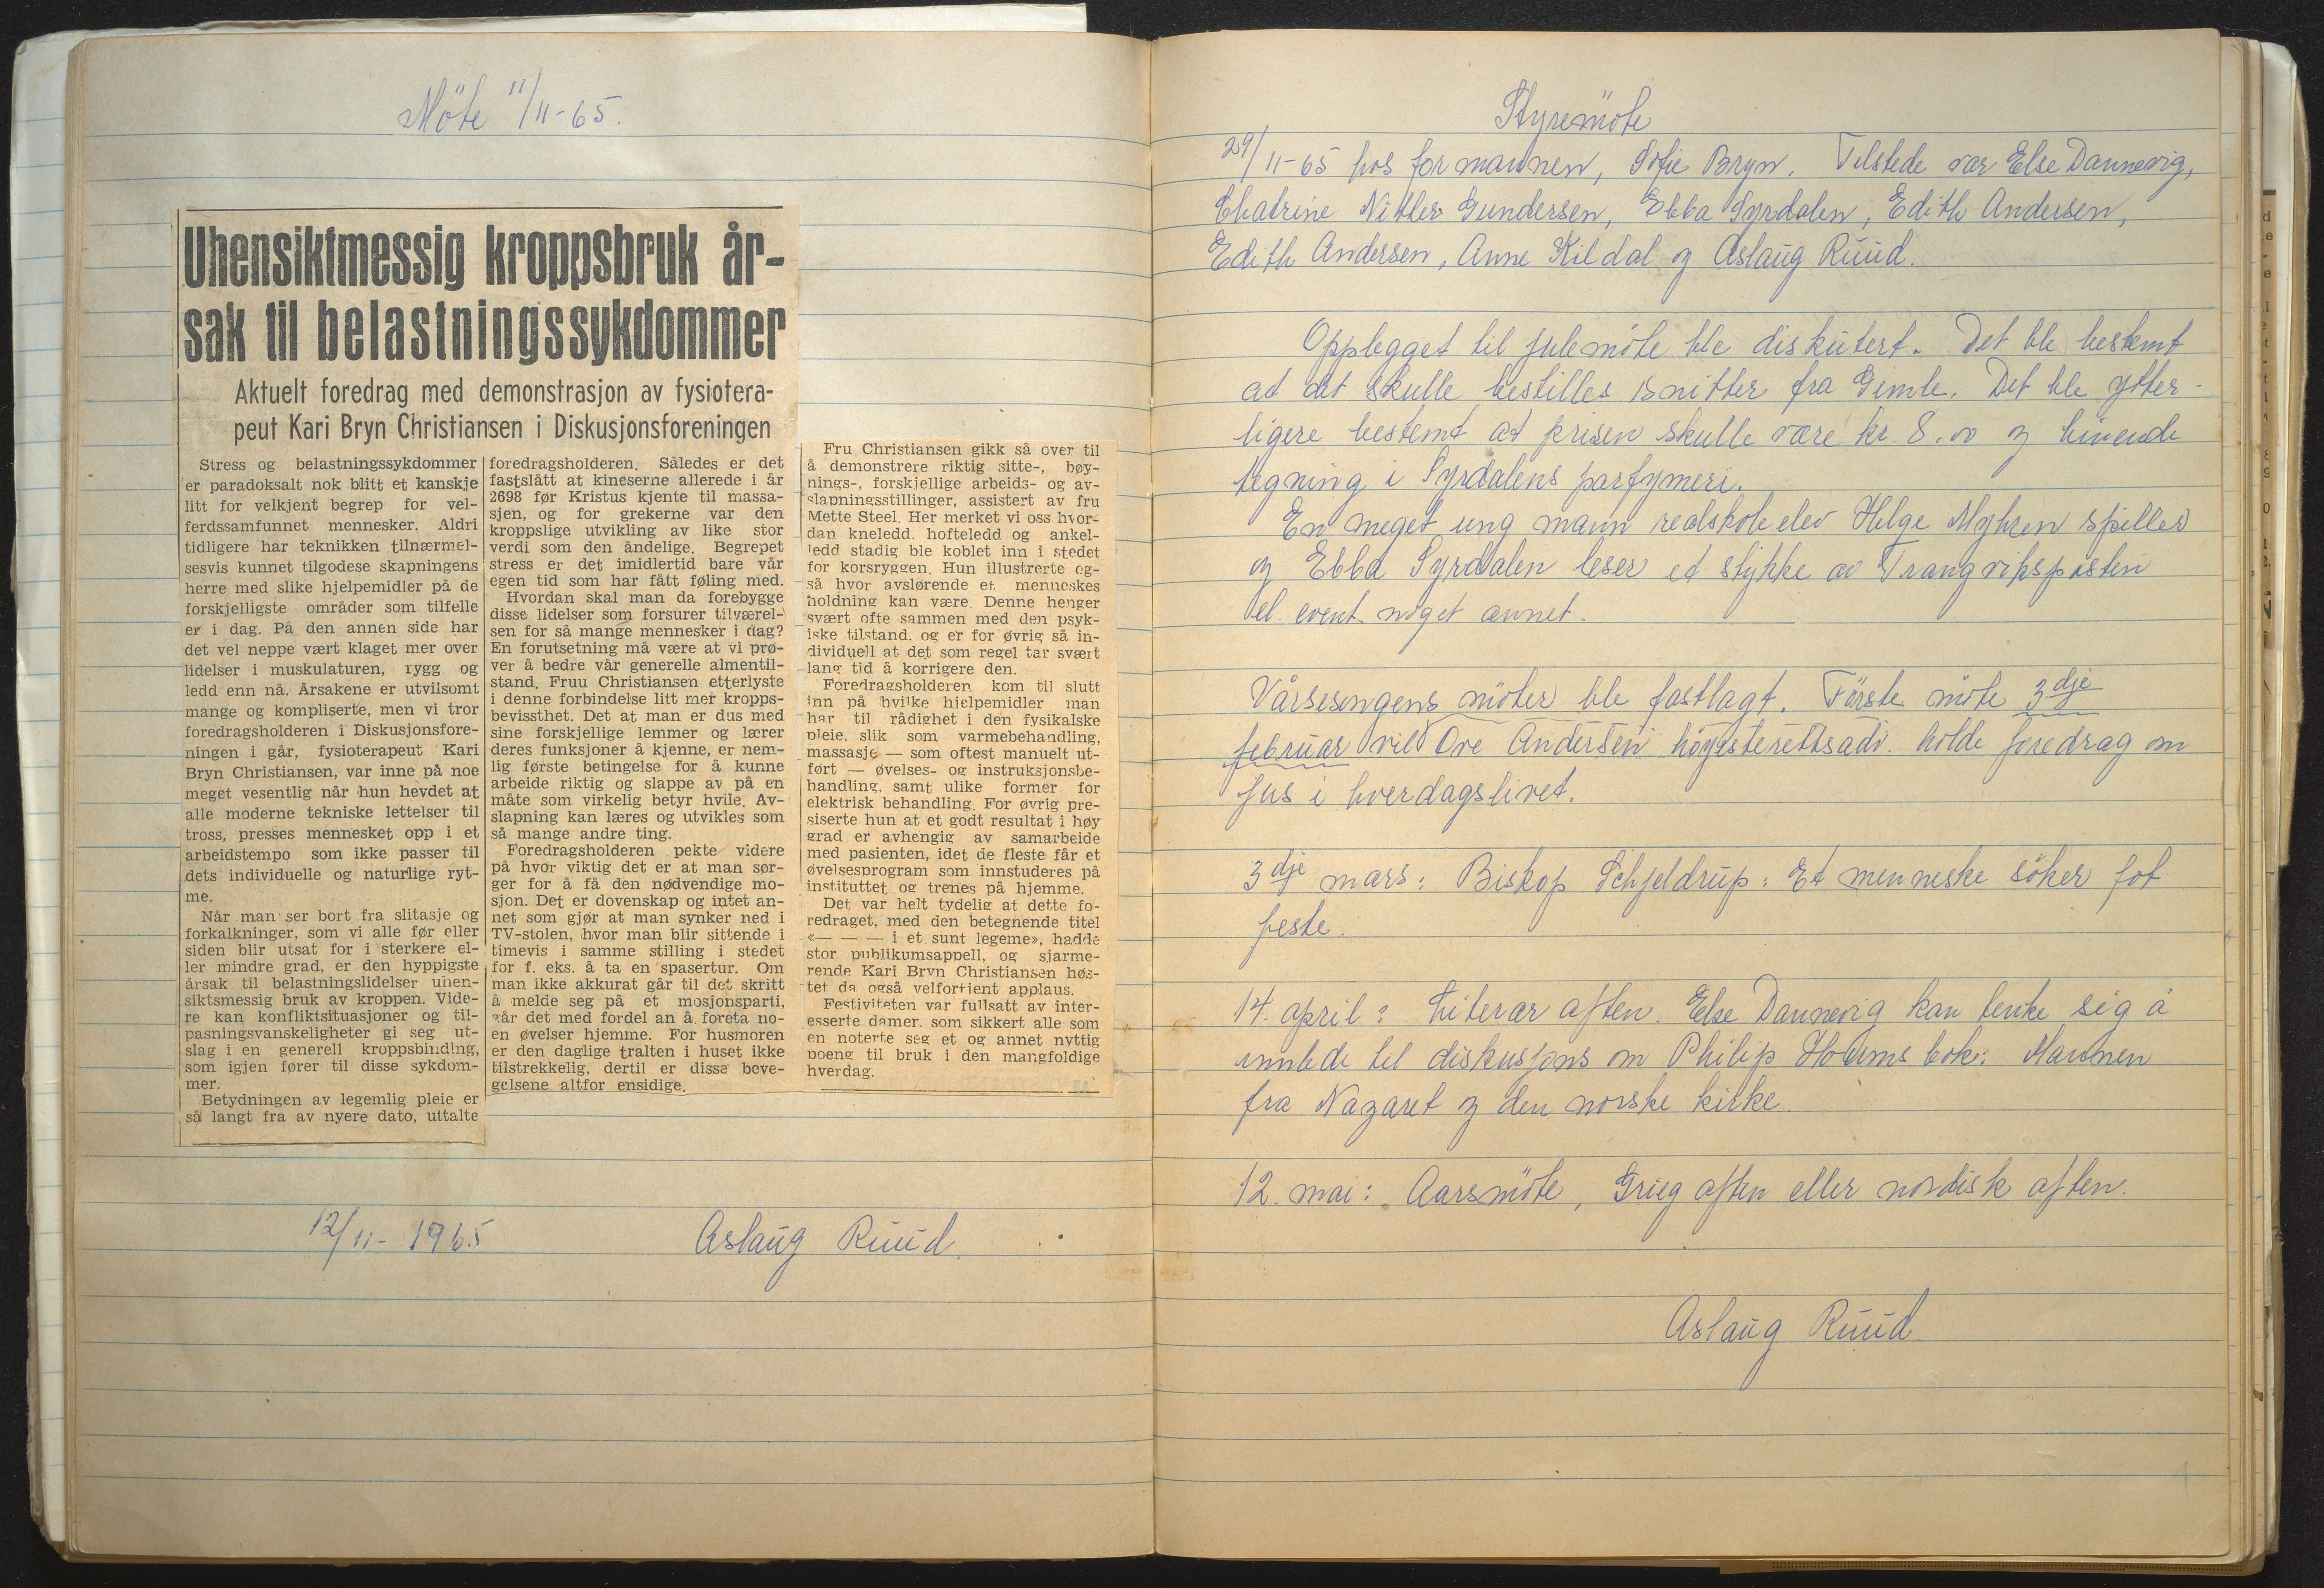 Möte 11/11-65.
Uhensiktmessig kroppsbruk år-
sak til belastningssykdommer
Aktuelt foredrag med demonstrasjon av fysiotera-
peut Kari Bryn Christiansen i Diskusjonsforeningen
Stress og belastningssykdommer
er paradoksalt nok blitt et kanskje
litt for velkjent begrep for vel-
ferdssamfunnet mennesker. Aldri
tidligere har teknikken tilnærmel-
sesvis kunnet tilgodese skapningens
herre med slike hjelpemidler på de
forskjelligste områder som tilfelle
er i dag. På den annen side har
det vel neppe vært klaget mer over
lidelser i muskulaturen, rygg og
ledd enn nå. Årsakene er utvilsomt
mange og kompliserte, men vi tror
foredragsholderen i Diskusjonsfore-
ningen i går, fysioterapeut Kari
Bryn Christiansen, var inne på noe
meget vesentlig når hun hevdet at
alle moderne tekniske lettelser til
tross, presses mennesket opp i et
arbeidstempo som ikke passer til
dets individuelle og naturlige ryt-
me.
Når man ser bort fra slitasje og
forkalkninger, som vi alle før eller
siden blir utsat for i sterkere el-
ler mindre grad, er den hyppigste
årsak til belastningslidelser uhen-
siktsmessig bruk av kroppen. Vide-
re kan konfliktsituasjoner og til-
pasningsvanskeligheter gi seg ut-
slag i en generell kroppsbinding,
som igjen fører til disse sykdom-
mer.
Betydningen av legemlig pleie er
så langt fra av nyere dato, uttalte
foredragsholderen. Således er det
fastslått at kineserne allerede i år
2698 før Kristus kjente til massa-
sjen, og for grekerne var den
kroppslige utvikling av like stor
verdi som den åndelige. Begrepet
stress er det imidlertid bare vår
egen tid som har fått føling med.
Hvordan skal man da forebygge
disse lidelser som forsurer tilværel-
sen for så mange mennesker i dag?
En forutsetning må være at vi prø-
ver å bedre vår generelle almentil-
stand. Fruu Christiansen etterlyste
i denne forbindelse litt mer kropps-
bevissthet. Det at man er dus med
sine forskjellige lemmer og lærer
deres funksjoner å kjenne, er nem-
lig første betingelse for å kunne
arbeide riktig og slappe av på en
måte som virkelig betyr hvile. Av-
slapning kan læres og utvikles som
så mange andre ting.
Foredragsholderen pekte videre
på hvor viktig det er at man sør-
ger for å få den nødvendige mo-
sjon. Det er dovenskap og intet an-
net som gjør at man synker ned i
TV-stolen, hvor man blir sittende i
timevis i samme stilling i stedet
for f. eks. å ta en spasertur. Om
man ikke akkurat går til det skritt
å melde seg på et mosjonsparti,
går det med fordel an å foreta no-
en øvelser hjemme. For husmoren
er den daglige tralten i huset ikke
tilstrekkelig, dertil er disse beve-
gelsene altfor ensidige.
Fru Christiansen gikk så over til
å demonstrere riktig sitte-, bøy-
nings-, forskjellige arbeids- og av-
slapningsstillinger, assistert av fru
Mette Steel. Her merket vi oss hvor-
dan kneledd, hofteledd og ankel-
ledd stadig ble koblet inn i stedet
for korsryggen. Hun illustrerte og-
så hvor avslørende et menneskes
holdning kan være. Denne henger
svært ofte sammen med den psyk-
iske tilstand, og er for øvrig så in-
dividuell at det som regel tar svært
lang tid å korrigere den.
Foredragsholderen kom til slutt
inn på hvilke hjelpemidler man
har til rådighet i den fysikalske
pleie, slik som varmebehandling,
massasje — som oftest manuelt ut-
ført — øvelses- og instruksjonsbe-
handling, samt ulike former for
elektrisk behandling. For øvrig pre-
siserte hun at et godt resultat i høy
grad er avhengig av samarbeide
med pasienten, idet de fleste får et
øvelsesprogram som innstuderes på
instituttet og trenes på hjemme.
Det var helt tydelig at dette fo-
redraget, med den betegnende titel
«— — — i et sunt legeme», hadde
stor publikumsappell, og sjarme-
rende Kari Bryn Christiansen høs-
tet da også velfortjent applaus.
Festiviteten var fullsatt av inter-
esserte damer, som sikkert alle som
en noterte seg et og annet nyttig
poeng til bruk i den mangfoldige
hverdag.
12/11- 1965 Aslaug Ruud.
Styremöte
29/11-65 hos formannen, Sofie Bryn. Tilstede var Else Dannevig,
Chatrine Nitter Gundersen, Ebba Syrdalen, Edith Andersen,
Edith Andersen, Anne Kildal og Aslaug Ruud.
Opplegget til julemöte ble diskutert. Det ble bestemt
at det skulle bestilles snitter fra Gimle. Det ble ytter-
ligere bestemt at prisen skulle være kr. 8.00 og bindende
tegning i Syrdalens parfymeri.
En meget ung mann realskoleelev Helge Myhren spiller
og Ebba Syrdalen leser et stykke av Trangviksposten
el. event. noget annet.
Vårsesongens möter ble fastlagt. Förste möte 3dje
februar vil Ove Andersen höyesterettsadv. holde foredrag om
Jus i hverdagslivet.
3dje mars: Biskop Schjeldrup: Et menneske söker fot
feste.
14. april: Literær aften. Else Dannevig kan tenke sig å
innlede til diskusjons om Philip Houms bok: Mannen
fra Nazaret og den norske kirke.
12. mai: Aarsmöte, Grieg aften eller nordisk aften.
Aslaug Ruud